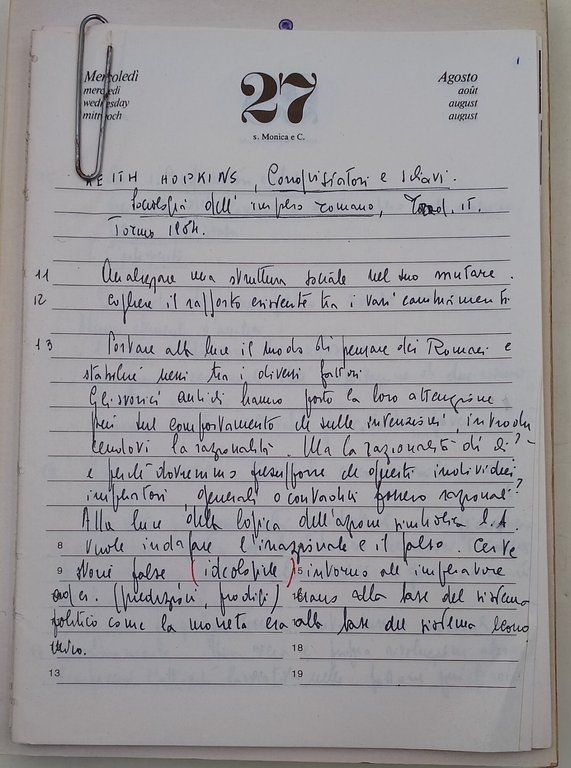 1
Mercoledì
mercredi
wednesday
mittwoch
27
s. Monica e C.
Agosto
août
august
august
KEITH HOPKINS, Conquistatori e schiavi.
Sociologia dell'impero romano, Trad. it.
Torino 1984.
11 Analizzare una struttura sociale nel suo mutare.
12 cogliere il rapporto esistente tra i vari cambiamenti
13 Portare alla luce il modo di pensare dei Romani e
stabilire nessi tra i diversi fattori
Gli storici antichi hanno posto la loro attenzione
più sul comportamento che sulle intenzioni, introdu
cendovi la razionalità. Ma la razionalità di chi?
e perché dovremmo presupporre che questi individui
imperatori, generali o contadini fossero razionali?
Alla luce della logica dell'azione simbolica l'A.
8 vuole indagare l'irrazionale e il falso. Certe
9 storie false (ideologiche) 15 intorno all'imperatore
ad es. (predizioni, prodigi) erano alla base del sistema
politico come la moneta era alla base del sistema econo
mico.
18
13 19